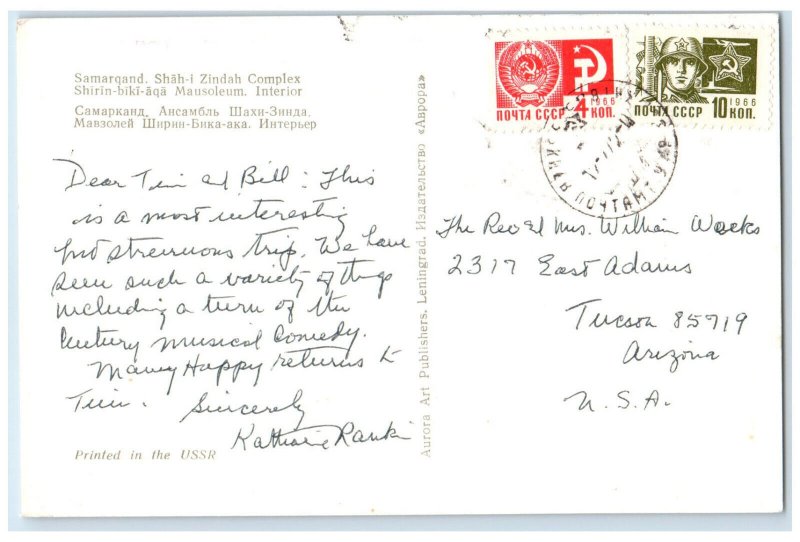 Samarqand. Shāh-i Zindah Complex
Shīrīn-bīkī-āqā Mausoleum. Interior
Самарканд. Ансамбль Шахи-Зинда,
Мавзолей Ширин-Бика-ака. Интерьер
Dear Tim and Bill: This
is a most interesting
but strenuous trip. We have
seen such a variety of things
including a turn of the
Century musical comedy.
Many Happy returns to
Tim.
Sincerely
Katharine Rankin
Printed in the USSR
Aurora Art Publishers. Leningrad. Издательство «Аврора»
1966
ПОЧТА СССР 4 КОП.
1966
ПОЧТА СССР 10 КОП.
ПОЧТАМТ
The Rev & Mrs. William
2317 East Adams
Tucson 85719
Arizona
U.S.A.